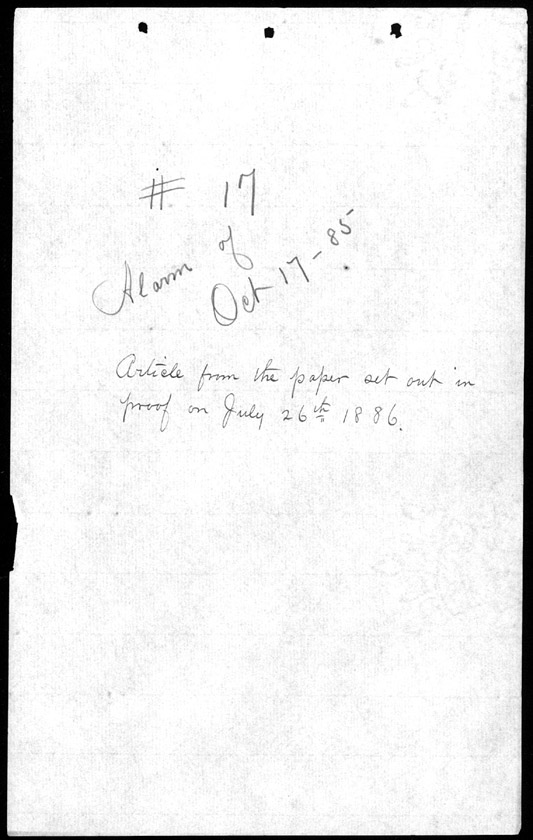 # 17
Alarm of
Oct 17-85
Article from the paper set out in
proof on July 26th 1886.